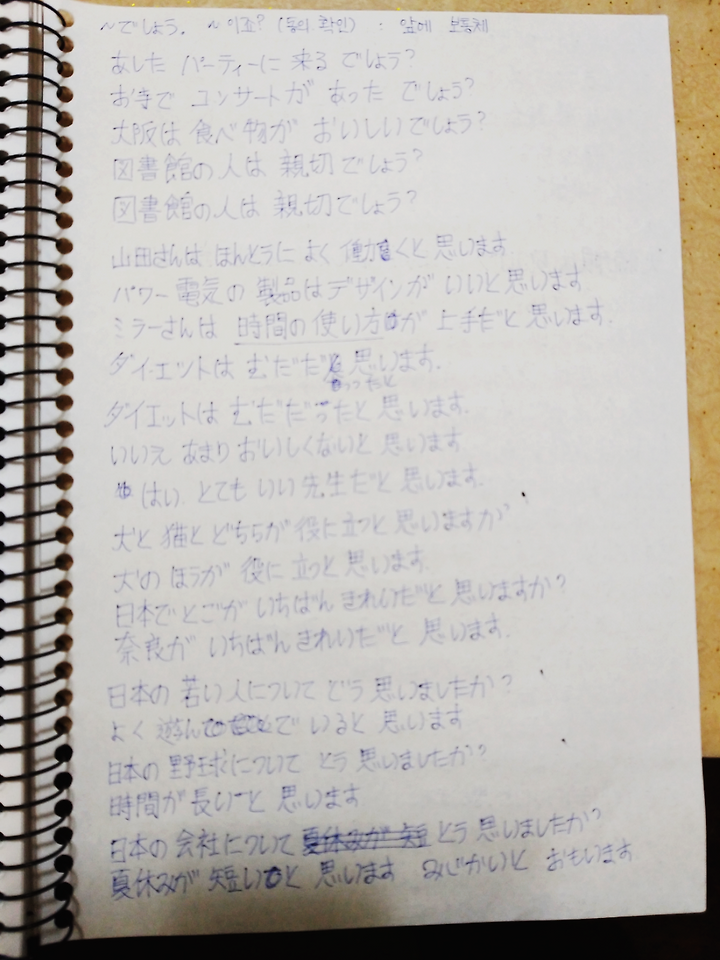 ~でしょう. ~이죠? (동의 확인) : 앞에 보통체
あした パーティーに 来る でしょう?
おきで コンサートが あった でしょう?
大阪は 食べ物が おいしいでしょう?
図書館の人は 親切でしょう?
図書館の人は 親切でしょう?
山田さんは ほんとうに よく 働くと 思います
パワー電気の 製品はデザインが いいと思います
ミラーさんは 時間の使い方が 上手だと 思います.
ダイエットは むだだ 思います.
ったと
ダイエットは むだだったと 思います.
いいえ あまり おいしくないと 思います
はい. とても いい 先生だと 思います.
犬と 猫と どちらが 役に立つと 思いますか
犬の ほうが 役に 立つと 思います.
日本で とごが いちばん きれいだと 思いますか?
奈良が いちばん きれいだと 思います.
日本の 若い 人について どう 思いましたか?
よく 遊んで いると 思います
日本の 野球について とう 思いましたか?
時間が 長いと 思います
日本の 会社について 夏休みが 短 とう 思いましたか?
夏休みが 短いと 思います みじかいと おもいます